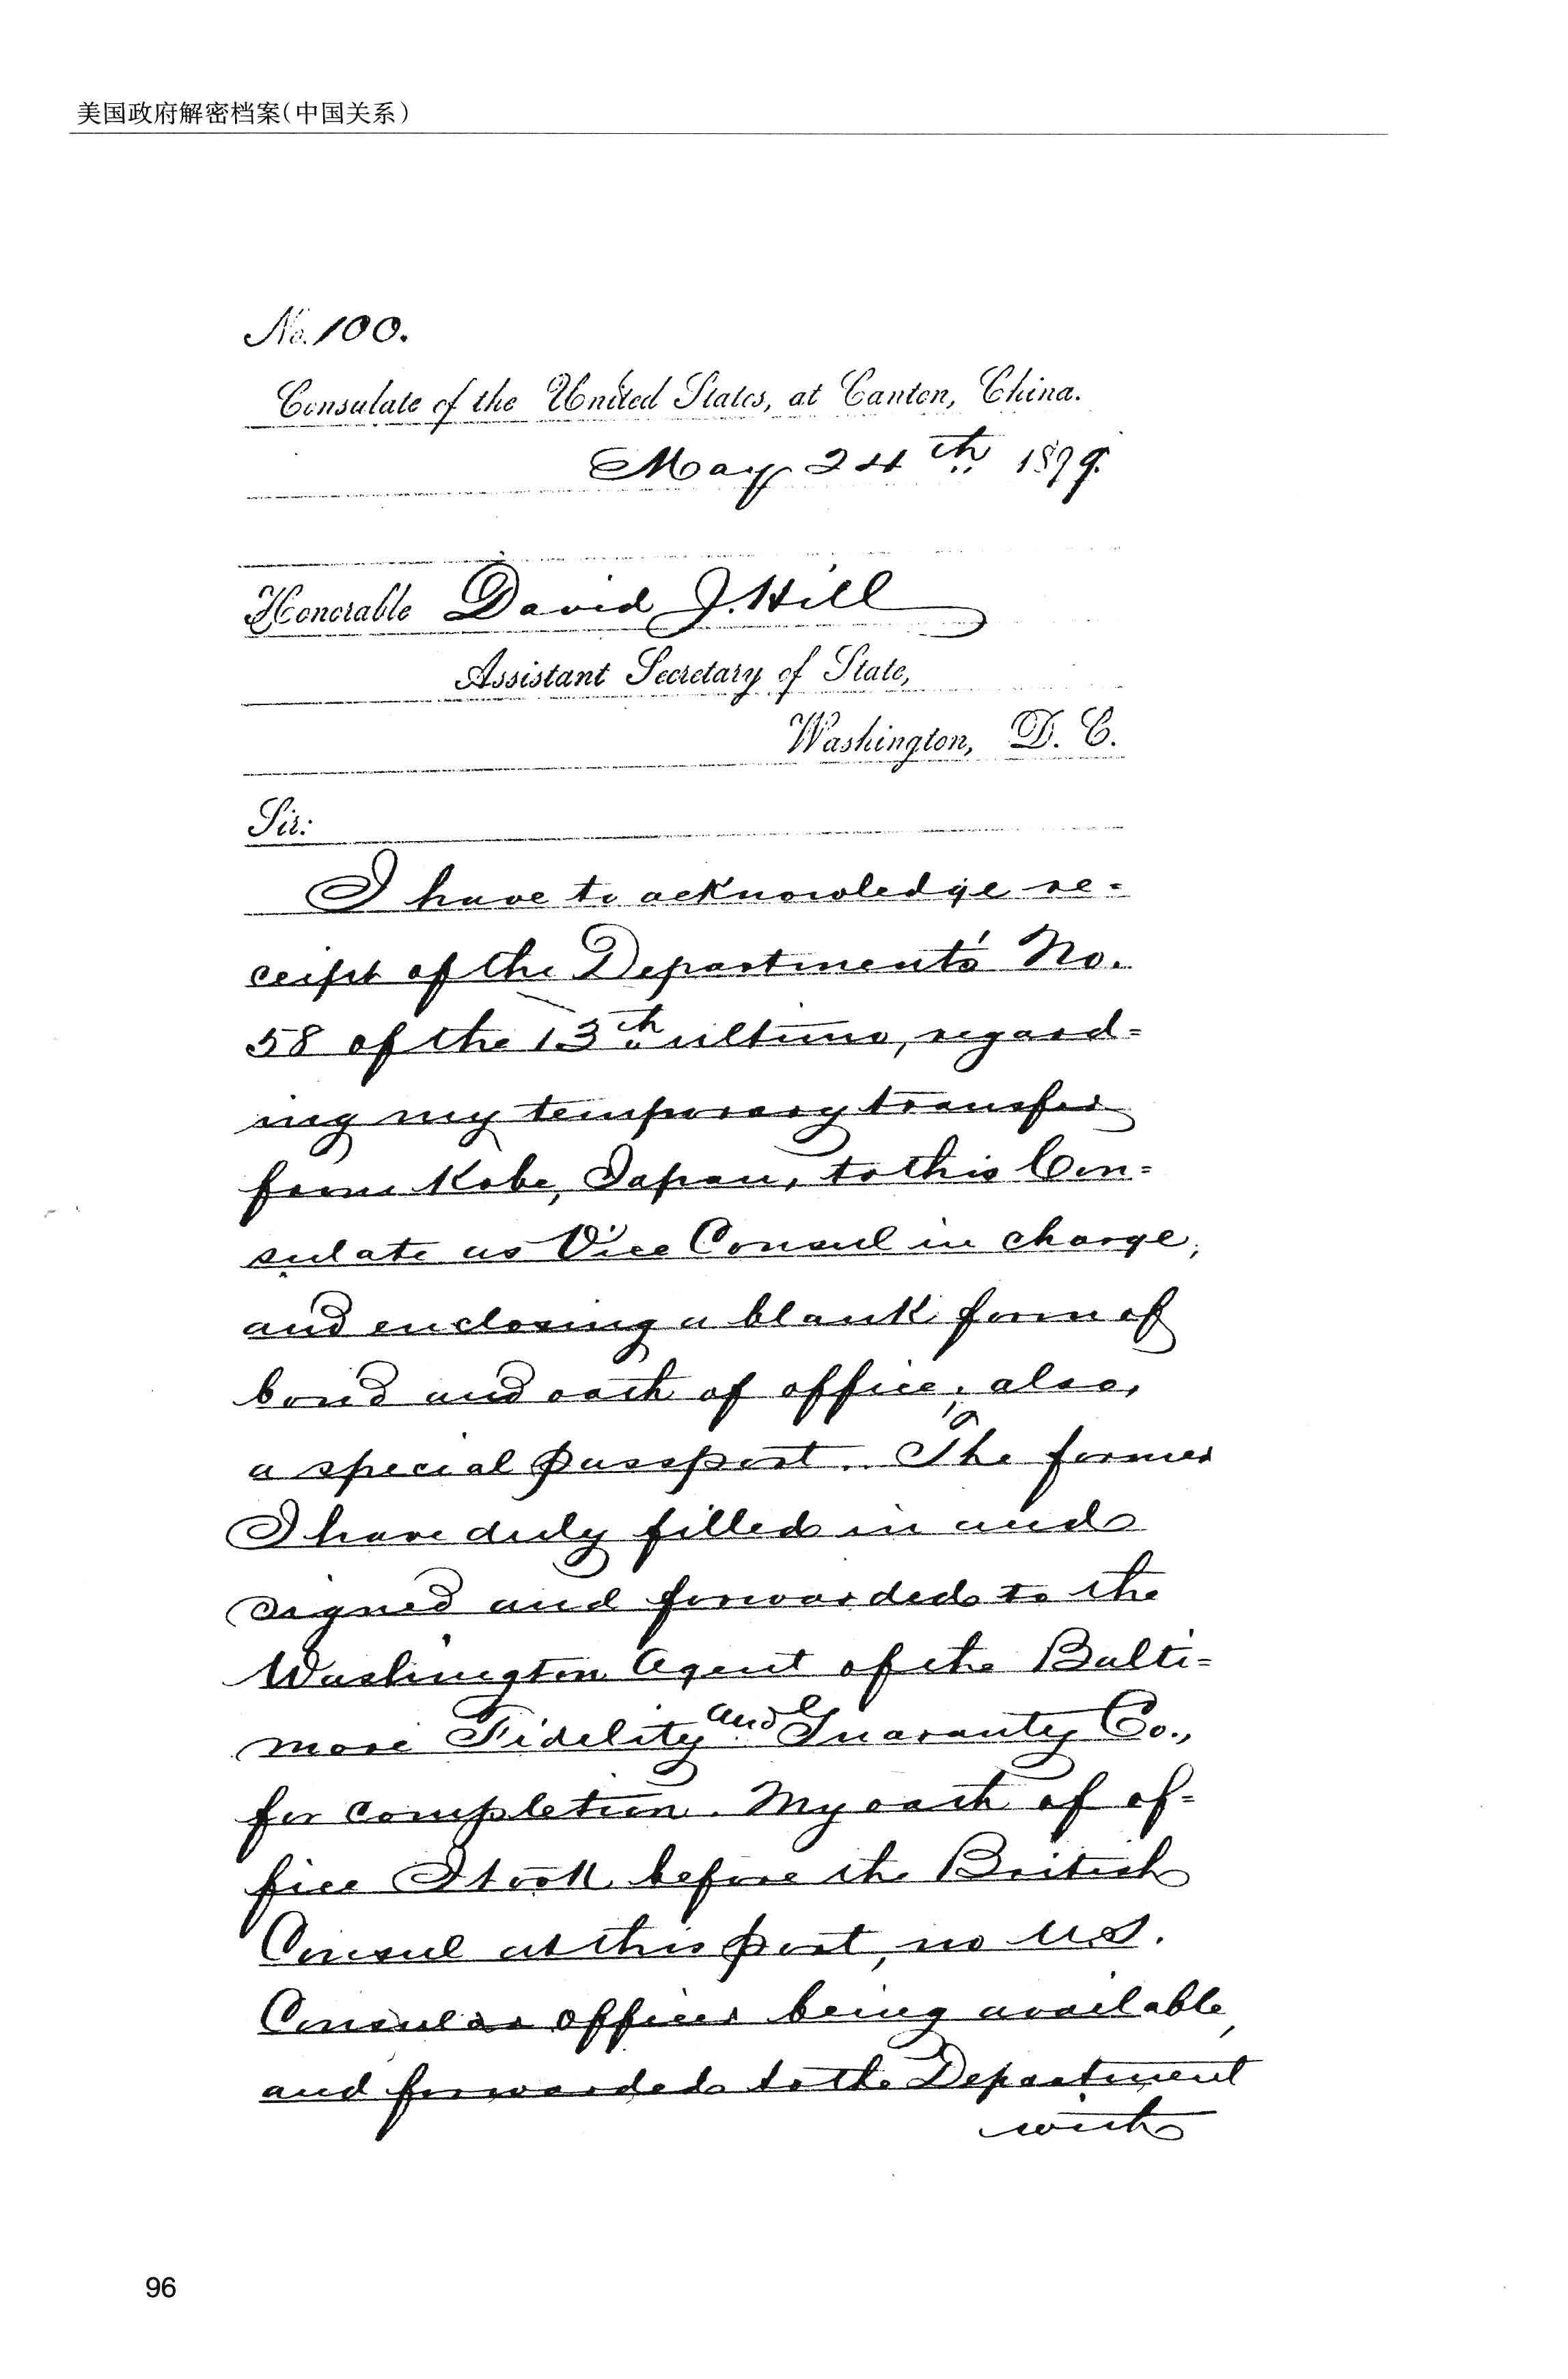 美国政府解密档案(中国关系)
No. 100.
Consulate of the United States, at Canton, China.
May 24th 1899.
Honorable David J. Hill
Assistant Secretary of State,
Washington, D. C.
Sir:
I have to acknowledge re=
ceipt of the Department's No.
58 of the 13th ultimo, regard=
ing my temporary transfer
from Kobe, Japan, to this Con=
sulate as Vice Consul in charge,
and enclosing a blank form of
bond and oath of office; also,
a special passport. The former
I have duly filled in and
signed and forwarded to the
Washington Agent of the Balti=
more Fidelity and Guaranty Co.,
for completion. My oath of of=
fice I took before the British
Consul at this port, no U.S.
Consular officer being available,
and forwarded to the Department
with
96